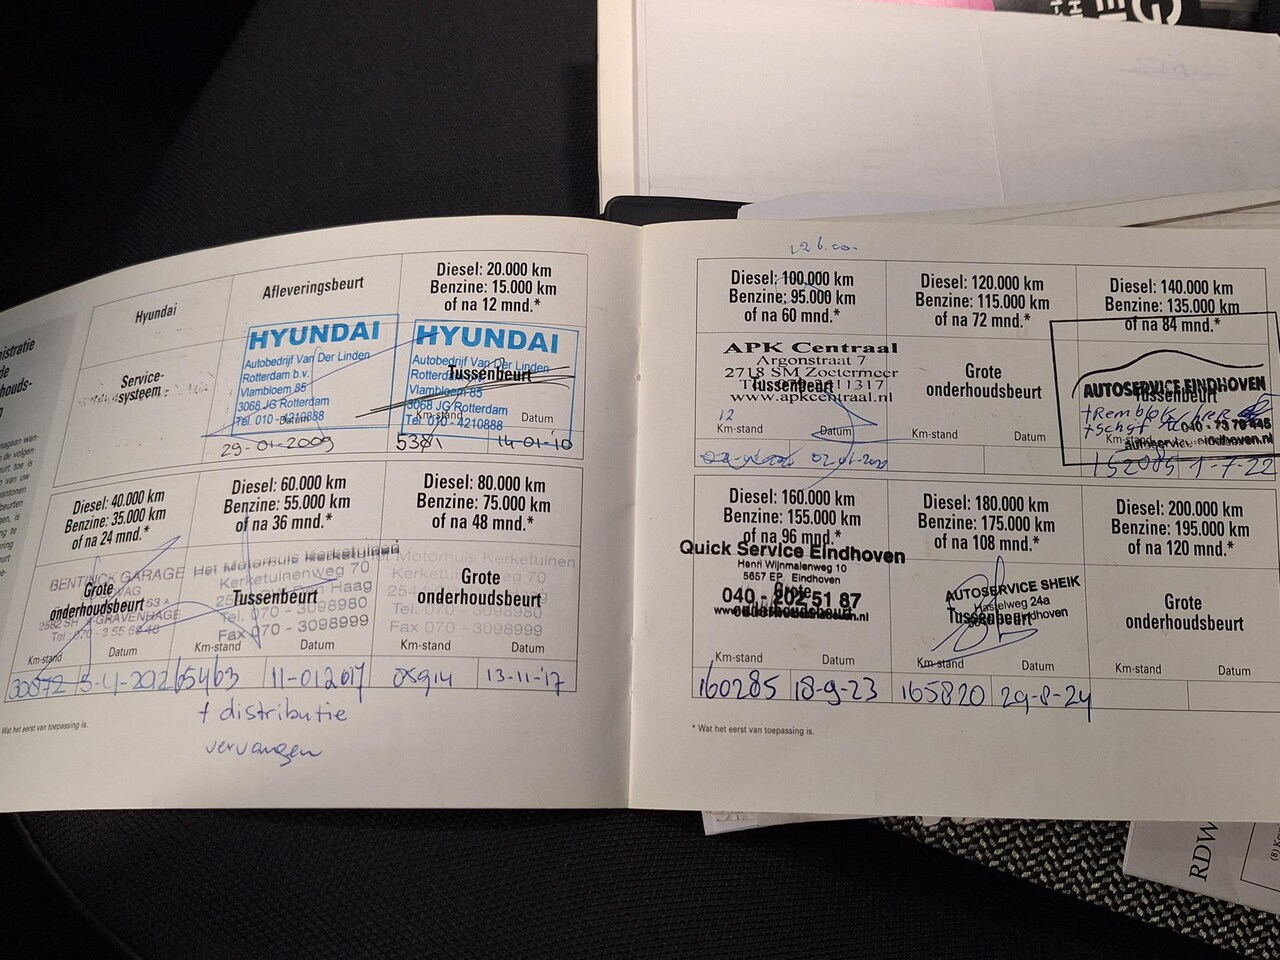 Hyundai
Service-
systeem
Afleveringsbeurt
HYUNDAI
Autobedrijf Van Der Linden
Rotterdam b.v.
Vlambloem 85
3068 JG Rotterdam
Tel. 010 - 4210888
Datum
29-01-2009
Diesel: 20.000 km
Benzine: 15.000 km
of na 12 mnd.*
HYUNDAI
Autobedrijf Van Der Linden
Tussenbeurt
Vlambloem 85
3068 JG Rotterdam
Km-stand
Datum
Tel. 010 - 4210888
5381
14-01-10
Diesel: 40.000 km
Benzine: 35.000 km
of na 24 mnd.*
BENTINCK GARAGE
Grote
onderhoudsbeurt
Km-stand
Datum
30872
Diesel: 60.000 km
Benzine: 55.000 km
of na 36 mnd.*
Het Motorhuis Kerketuinen
Kerketuinenweg 70
Tussenbeurt
Tel. 070 - 3098980
Fax 070 - 3098999
Km-stand
Datum
65463
11-012017
+ distributie
vervangen
Diesel: 80.000 km
Benzine: 75.000 km
of na 48 mnd.*
Motorhuis Kerketuinen
Kerketuinenweg 70
Grote
onderhoudsbeurt
Tel. 070 - 3098980
Fax 070 - 3098999
Km-stand
Datum
13-11-'17
* Wat het eerst van toepassing is.
Diesel: 100.000 km
Benzine: 95.000 km
of na 60 mnd.*
APK Centraal
Argonstraat 7
2718 SM Zoetermeer
Tussenbeurt
www.apkcentraal.nl
12
Datum
Diesel: 120.000 km
Benzine: 115.000 km
of na 72 mnd.*
Grote
onderhoudsbeurt
Km-stand
Datum
Diesel: 140.000 km
Benzine: 135.000 km
of na 84 mnd.*
AUTOSERVICE EINDHOVEN
Tussenbeurt
152085
1-7-22
Diesel: 160.000 km
Benzine: 155.000 km
of na 96 mnd.*
Quick Service Eindhoven
Henri Wijnmalenweg 10
5657 EP Eindhoven
Grote
040 - 202 51 87
onderhoudsbeurt
Km-stand
Datum
160285
18-9-23
Diesel: 180.000 km
Benzine: 175.000 km
of na 108 mnd.*
AUTOSERVICE SHEIK
Hastelweg 24a
Tussenbeurt
Km-stand
Datum
165820
29-8-24
Diesel: 200.000 km
Benzine: 195.000 km
of na 120 mnd.*
Grote
onderhoudsbeurt
Km-stand
Datum
* Wat het eerst van toepassing is.
RDW